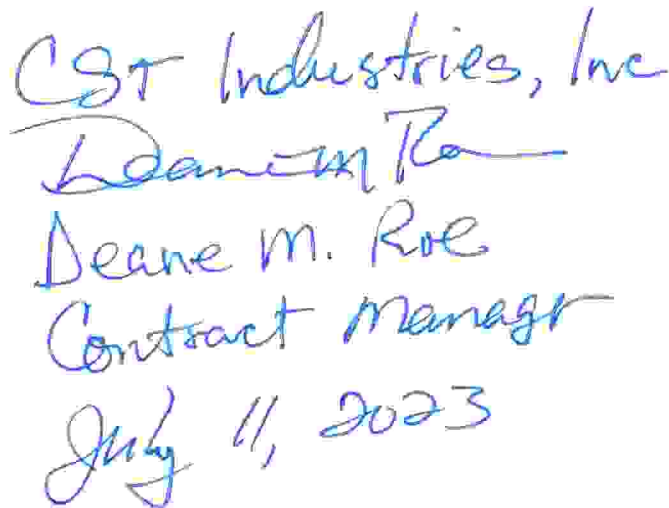 CST Industries, Inc
Deane M Roe
Deane M. Roe
Contract Managr
July 11, 2023